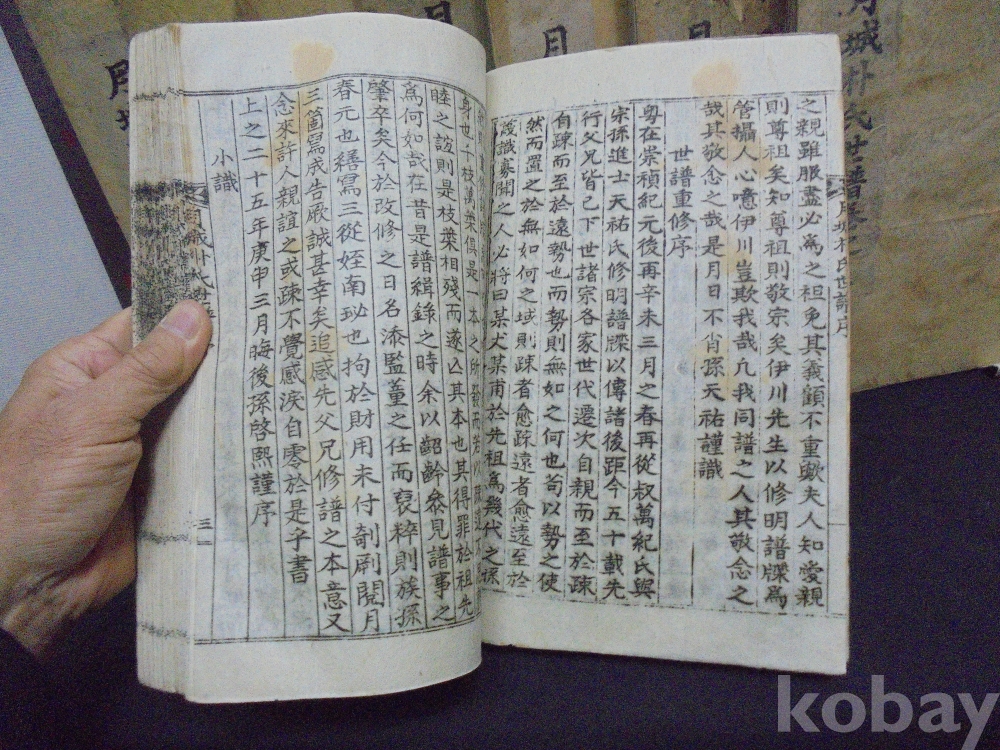 之親雖服盡必爲之袒免其義顧不重歟夫人知愛親
則尊祖矣知尊祖則敬宗矣伊川先生以修明譜牒爲
管攝人心噫伊川豈欺我哉凡我同譜之人其敬念之
哉其敬念之哉是月日不肖孫天祐謹識
世譜重修序
粤在崇禎紀元後再辛未三月之春再從叔萬紀氏與
宗孫進士天祐氏修明譜牒以傳諸後距今五十載先
行父兄皆已下世諸宗各家世代遷次自親而至於疎
自疎而至於遠勢也而勢則無如之何也苟以勢之使
然而置之於無如何之域則疎者愈疎遠者愈遠至於
識寡聞之人必將曰某大某甫於先祖爲幾代之孫
身也千枝萬葉俱是一本之所發而若以
睦之誼則是枝葉相殘而遂亾其本也其得罪於祖先
爲何如哉在昔是譜緝錄之時余以齠齡叅見譜事之
肇卒矣今於改修之日名添監董之任而裒粹則族孫
春元也繕寫三從姪南珌也拘於財用未付剞劂閱月
三箇寫成告厥誠甚幸矣追感先父兄修譜之本意又
念來許人親誼之或疎不覺感淚自零於是乎書
上之二十五年庚申三月晦後孫啓熙謹序
小識
三
月城朴氏世譜序
月城朴氏世譜卷之
月
月
kobay